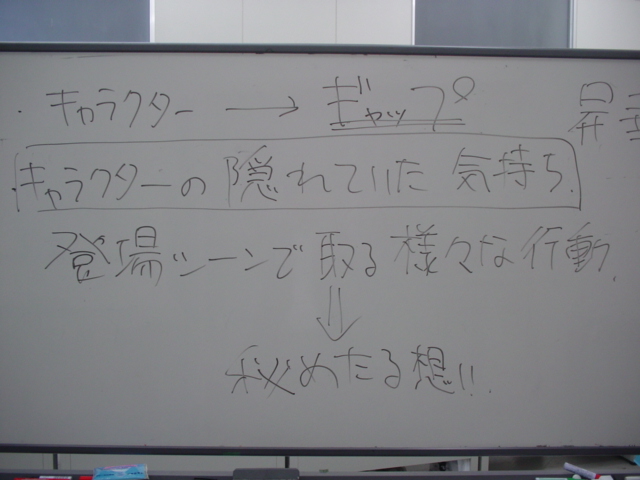 ・キャラクター → ギャップ 昇
・キャラクターの隠れていた気持ち.
登場シーンで取る様々な行動.
⇓
秘めたる想い!!